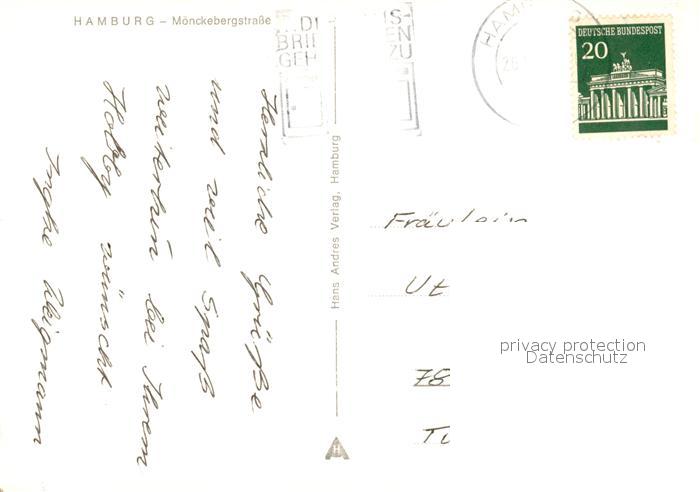 HAMBURG – Mönckebergstraße
BRIE
GEH
ZU
HAM
DEUTSCHE BUNDESPOST
20
Herzliche Grüße
und viel Spaß
weiterhin bei Ihrem
Hobby wünscht
Hans Andres Verlag, Hamburg
Fräulein
Ut
78
Tu
privacy protection
Datenschutz